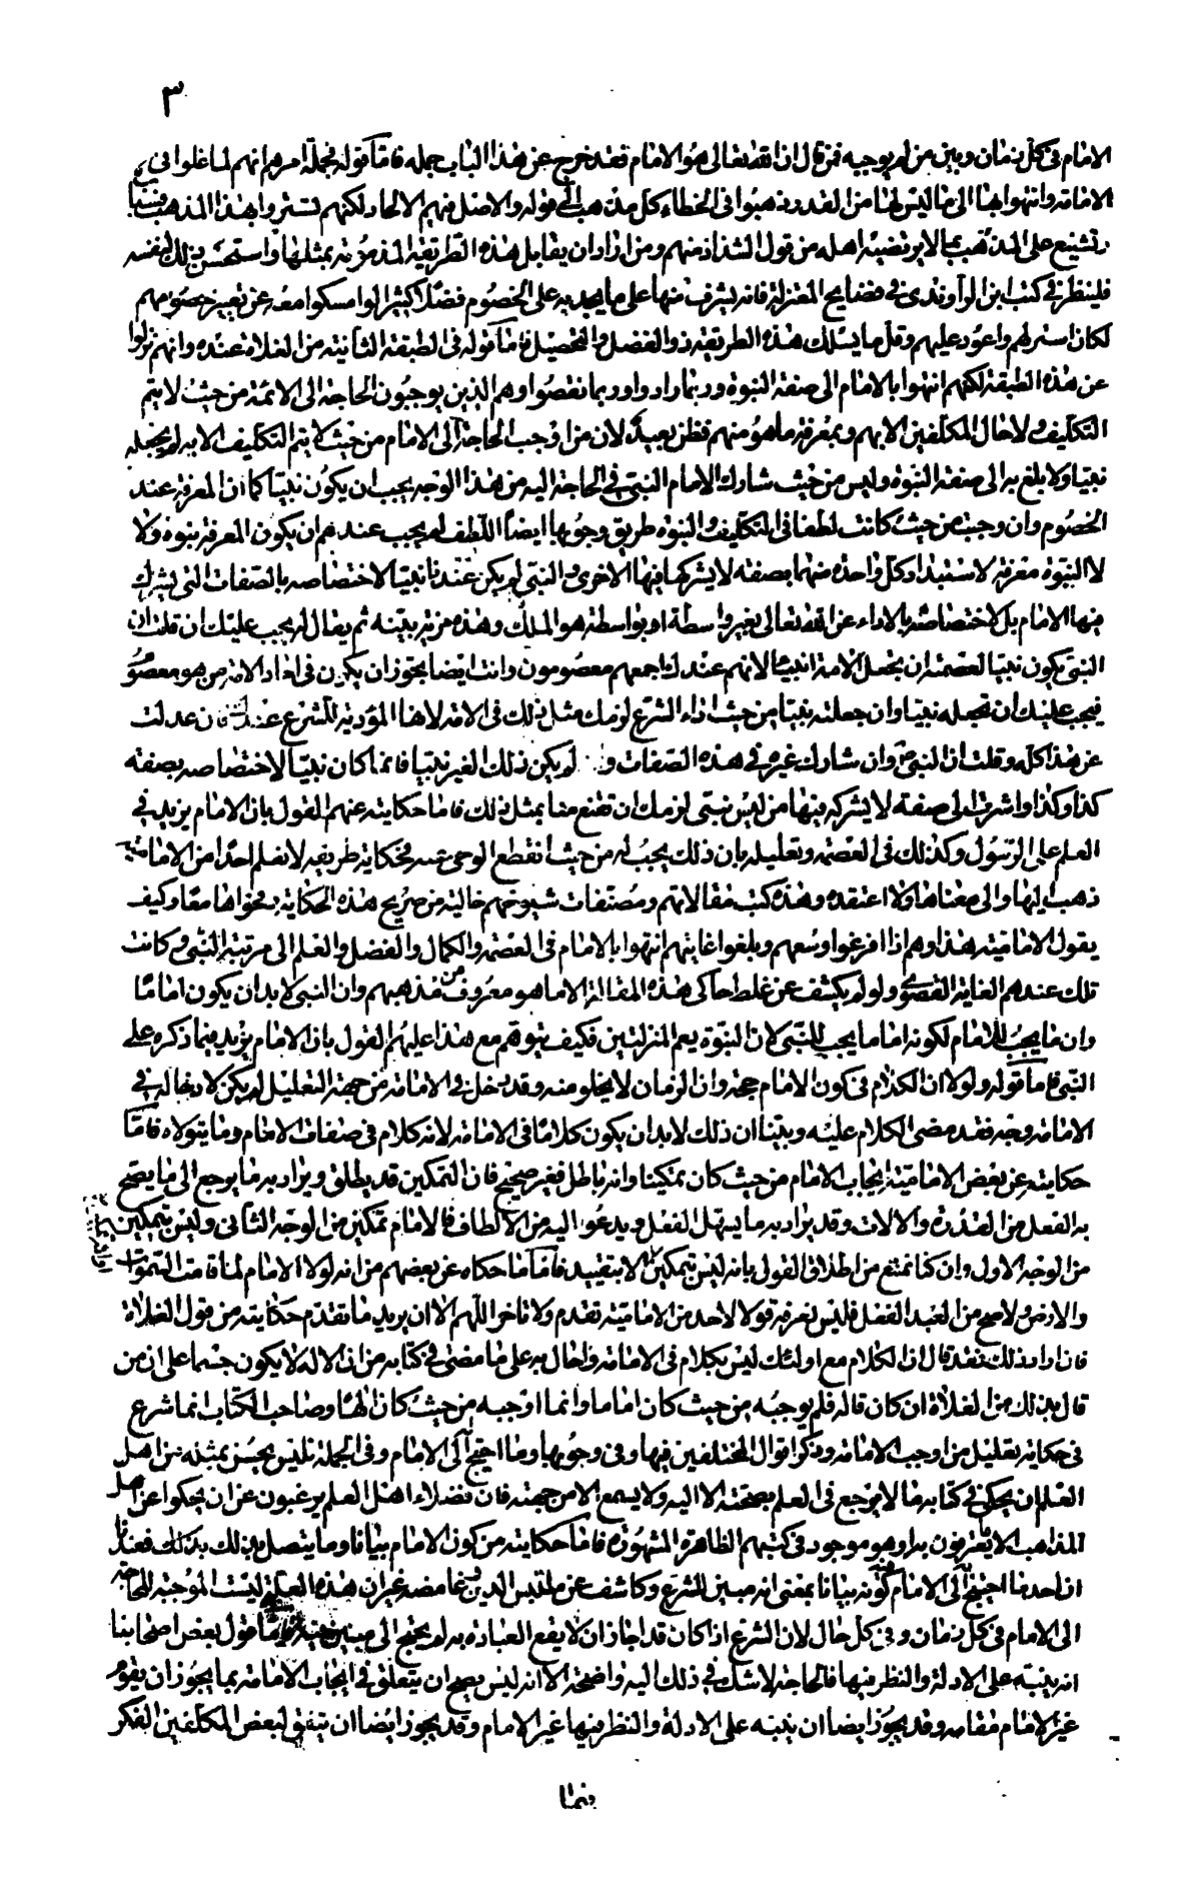 ٣
الامام فى كل زمان وبين من لم يوجبه فمن قال ان الله تعالى هو الامام فقد خرج عن هذا الباب جمله فاما قوله فجملة امرهم انهم لما غلوا فى
الامامة وانتهوا بها الى ما ليس لها من القدر ذهبوا فى الخطاء كل مذهب الى قوله والاصل فيهم الالحاد لكنهم تستروا بهذا المذهب فسباب
وتشنيع على المذهب بما لا يرتضيه اهله من قول الشذاذ منهم ومن اراد ان يقابل هذه الطريقة المذمومة بمثلها واستحسن ذلك لنفسه
فلينظر فى كتب ابن الراوندى فى فضايح المعتزلة فانه يشرف منها على ما يجد به على الخصوم فضلا كثيرا لو امسكوا معه عن تعيير خصومهم
لكان استر لهم واعود عليهم وقل ما يسلك هذه الطريقة ذو الفضل والتحصيل فاما قوله فى الطبقة الثانية من الغلاة عنده وانهم نزلوا
عن هذه الطبقة لكنهم انتهوا بالامام الى صفة النبوة وربما زادوا وربما نقصوا وهم الذين يوجبون الحاجة الى الائمة من حيث لا يتم
التكليف ولا حال المكلفين الا بهم وبمعرفة ما هو منهم فظن بعيد لان من اوجب الحاجة الى الامام من حيث لا يتم التكليف الا به لم يجعله
نبيا ولا بلغ به الى صفة النبوة وليس من حيث شارك الامام النبى فى الحاجة اليه من هذا الوجه يجب ان يكون نبيا كما ان المعرفة عند
الخصوم وان وجبت من حيث كانت لطفا فى التكليف والنبوة طريق وجوبها ايضا اللطف لم يجب عندهم ان يكون المعرفة نبوة ولا
لا النبوة معرفة لاستبداد كل واحدة منهما بصفة لا يشركها فيها الاخرى والنبى لم يكن عندنا نبيا لاختصاصه بالصفات التى يشرك
فيها الامام بل لاختصاصه بالاداء عن الله تعالى بغير واسطة او بواسطة هو الملك وهذه مزية بينة ثم يقال له يجب عليك ان قلت ان
النبى يكون نبيا لعصمته ان تجعل الامة انبياء لانهم عندك اجمعهم معصومون وانت ايضا يجوز ان يكون فى احاد الامة من هو معصوم
فيجب عليك ان تجعله نبيا وان جعلته نبيا من حيث اداء الشرع لزمك مثل ذلك فى الامة لانها المؤدية للشرع عندك فان عدلت
عن هذا كله وقلت ان النبى ص وان شارك غيره فى هذه الصفات و لم يكن ذلك الغير نبيا فانما كان نبيا لاختصاصه بصفة
كذا وكذا واشرت الى صفة لا يشركه فيها من ليس بنبى لزمك ان تقنع منا بمثل ذلك فاما حكايته عنهم القول بان الامام يزيد فى
العلم على الرسول وكذلك فى العصمة وتعليله بان ذلك يجب له من حيث انقطع الوحى عنه فحكاية طريفة لا نعلم احدا من الامامية
ذهب اليها والى معناها ولا اعتقده وهذه كتب مقالاتهم ومصنفات شيوخهم خالية من صريح هذه الحكاية وفحواها معا وكيف
يقول الامامية هذا وهم اذا افرغوا وسعهم وبلغوا غايتهم انتهوا بالامام فى العصمة والكمال والفضل والعلم الى مرتبة النبى وكانت
تلك عندهم الغاية القصوى ولو لم يكشف عن غلط حاكى هذه المقالة الا ما هو معروف من مذهبهم وان النبى لا بد ان يكون اماما
وان ما يجب للامام لكونه اماما يجب للنبى لان النبوة يعم المنزلتين فكيف يتوهم مع هذا عليهم القول بان الامام يزيد فيما ذكره على
النبى فاما قوله ولولا ان الكلام فى كون الامام حجة وان الزمان لا يخلو منه وقد يدخل فى الامامة من جهة التعليل لم يكن لادخاله فى
الامامة وجه فقد مضى الكلام عليه وبينا ان ذلك لا بد ان يكون كلاما فى الامامة لانه كلام فى صفات الامام وما يتولاه فاما
حكايته عن بعض الامامية ايجاب الامام من حيث كان تمكينا وانه باطل فغير صحيح فان التمكين قد يطلق ويراد به ما يرجع الى ما يصح
به الفعل من القدرة والالات وقد يراد به ما يسهل الفعل ويدعوا اليه من الالطاف فالامام تمكين من الوجه الثانى وليس بتمكين
من الوجه الاول وان كنا نمتنع من اطلاق القول بانه ليس بتمكين الا بتقييد فاما ما حكاه عن بعضهم من انه لولا الامام لما قامت السموات
والارض ولا صح من العبد الفعل فليس نعرفه قولا لاحد من الامامية تقدم ولا تاخر اللهم الا ان يريد ما تقدم حكايته من قول الغلاة
فان اراد ذلك فقد قال ان الكلام مع اولئك ليس بكلام فى الامامة واحال به على ما مضى فى كتابه من ان الاله لا يكون جسما على ان من
قال بذلك من الغلاة ان كان قاله فلم يوجبه من حيث كان اماما وانما اوجبه من حيث كان الها وصاحب الكتاب انما شرع
فى حكاية تعليل من اوجب الامامة وذكر اقوال المختلفين فيها وفى وجوبها وما احتيج الى الامام وفى الجملة فليس يحسن بمثله من اهل
العلم ان يحكى فى كتابه ما لا يرجع فى العلم بصحته الا اليه ولا يسمع الا من جهته فان فضلاء اهل العلم يرغبون عن ان يحكوا عن اهل
المذاهب الا ما يعترفون به او هو موجود فى كتبهم الظاهرة المشهورة فاما حكايته من كون الامام بيانا وما يتصل بذلك فعندنا
ان احد ما احتيج له الى الامام كونه بيانا بمعنى انه مبين للشرع وكاشف عن ملتبس الدين وغامضه غير ان هذه العلة ليست الموجبة للحاجة
الى الامام فى كل زمان وفى كل حال لان الشرع اذا كان قد اجاز ان لا يقع العبادة به لم يحتج الى مبين فاما قول بعض اصحابنا
انه ينبه على الادلة والنظر فيها فالحاجة لا شك فى ذلك اليه واضحة الا انه ليس يصح ان يتعلق فى ايجاب الامامة بما يجوز ان يقوم
غير الامام مقامه وقد يجوز ايضا ان ينبه على الادلة والنظر فيها غير الامام وقد يجوز ايضا ان يتفق لبعض المكلفين الفكر
فيما